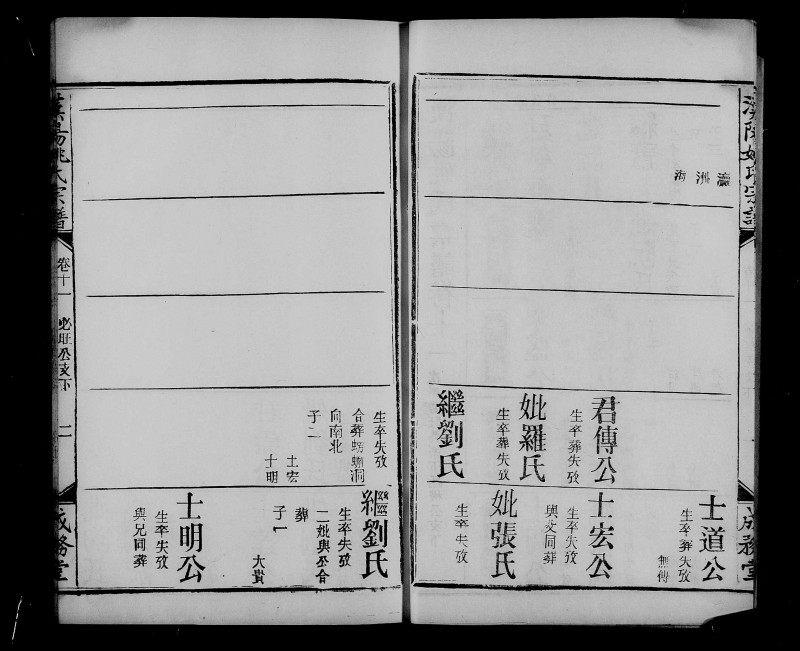 漢陽姚氏宗譜
瀛
洲
海
君傳公
生卒葬失攷
妣羅氏
生卒葬失攷
繼劉氏
士道公
生卒葬失攷
無傳
士宏公
生卒失攷
與父同葬
妣張氏
生卒失攷
成務堂
生卒失攷
合葬螃蠏洞
向南北
子二
士宏
士明
繼劉氏
生卒失攷
二妣與公合
葬
子一
大貴
士明公
生卒失攷
與兄同葬
漢陽姚氏宗譜
卷十一
必旺公支下
二
成務堂